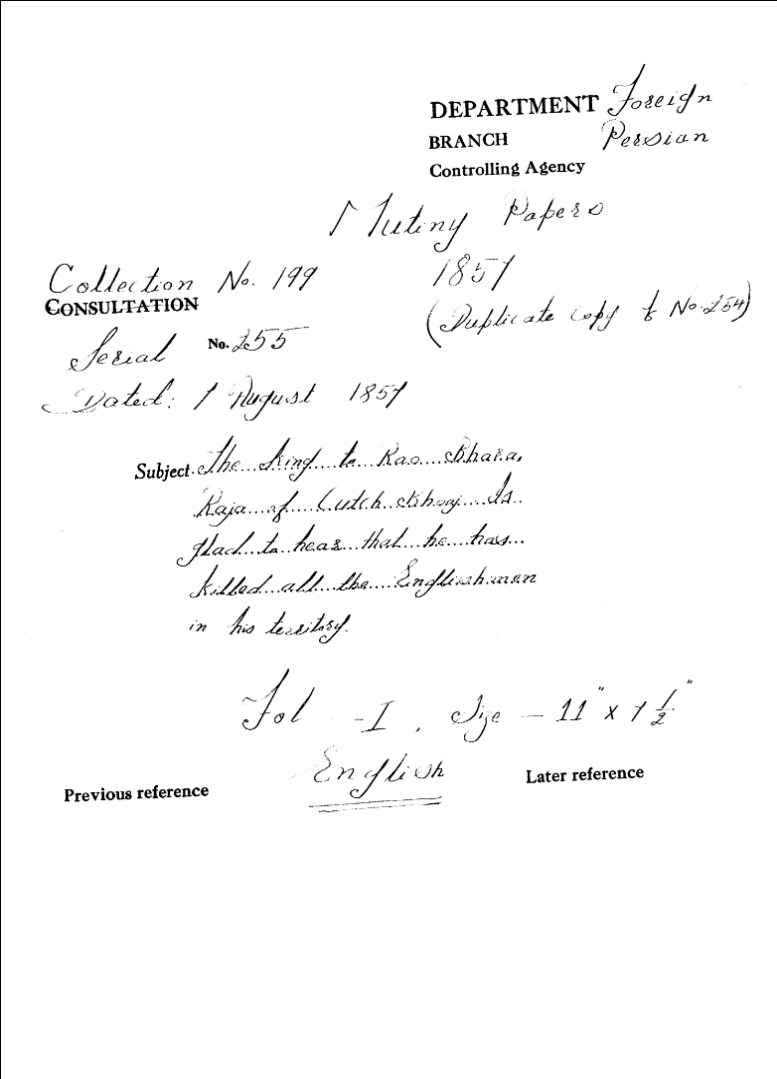 DEPARTMENT Foreign
BRANCH Persian
Controlling Agency
Mutiny Papers
Collection No. 199
1857
CONSULTATION
(Duplicate Copy to No. 254)
Serial No. 255
Dated: 7 August 1857
Subject. The King to Rao Bhara,
Raja of Cutch Bhuj. Is
glad to hear that he has
killed all the Englishmen
in his territory.
Fol - I. Size - 11" x 7 1/2"
English
Previous reference
Later reference